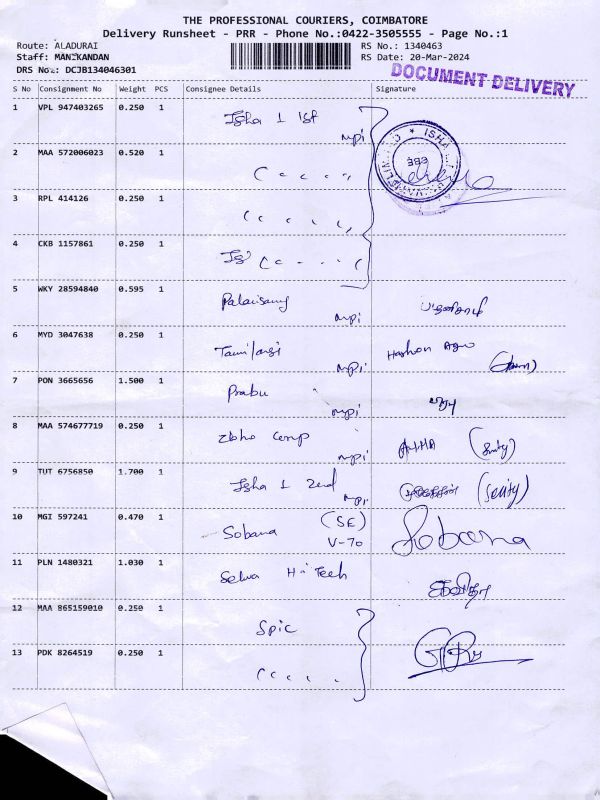 THE PROFESSIONAL COURIERS, COIMBATORE
Delivery Runsheet - PRR - Phone No.:0422-3505555 - Page No.:1
Route: ALADURAI RS No.: 1340463
Staff: MANIKANDAN RS Date: 20-Mar-2024
DRS No.: DCJB134046301
DOCUMENT DELIVERY
S No Consignment No Weight PCS Consignee Details Signature
1 VPL 947403265 0.250 1 Isha 1 1st
mpi
ISHA
2 MAA 572006023 0.520 1
3 RPL 414126 0.250 1
4 CKB 1157861 0.250 1
5 WKY 28594840 0.595 1 Palanisamy
mpi
6 MYD 3047638 0.250 1
mpi
7 PON 3665656 1.500 1 Prabu
mpi பிரபு
8 MAA 574677719 0.250 1
mpi
9 TUT 6756850 1.700 1 Isha 1 2nd
mpi
10 MGI 597241 0.470 1 Sobana (SE) Sobana
V-70
11 PLN 1480321 1.030 1 Selva Hi Tech
கவிதா
12 MAA 865159010 0.250 1 Spic
13 PDK 8264519 0.250 1